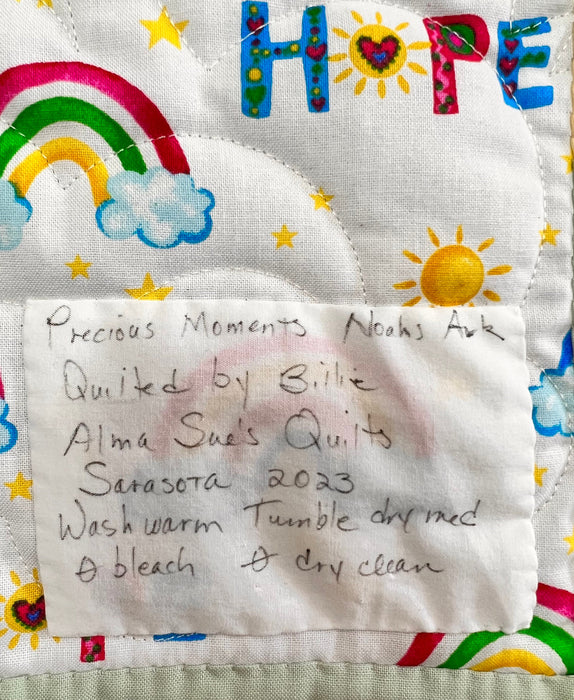 HOPE
Precious Moments Noahs Ark
Quilted by Billie
Alma Sue's Quilts
Sarasota 2023
Wash warm Tumble dry med
∅ bleach ∅ dry clean